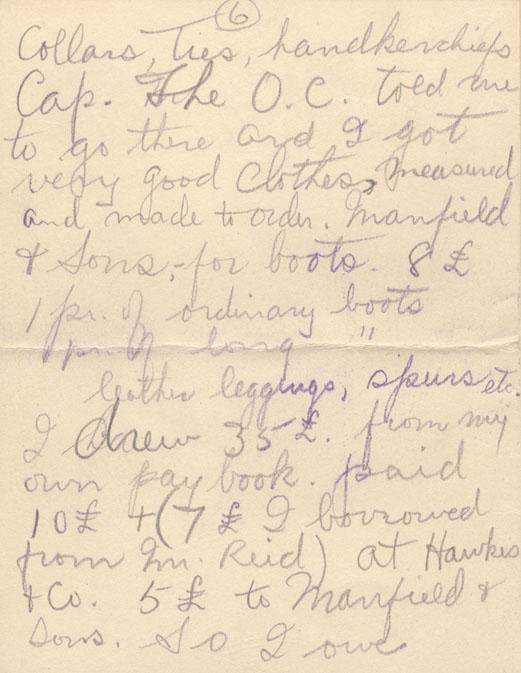 6
Collars, Ties, handkerchiefs
Cap. The O.C. told me
to go there and I got
very good clothes, measured
and made to order. Manfield
& Sons,-for boots. 8 £
1 pr. of ordinary boots
1 pr. of long "
leather leggings, spurs etc.
I drew 35 £. from my
own pay book. paid
10 £ + (7 £ I borrowed
from Mr. Reid) at Hawkes
& Co. 5 £ to Manfield &
Sons. So I owe